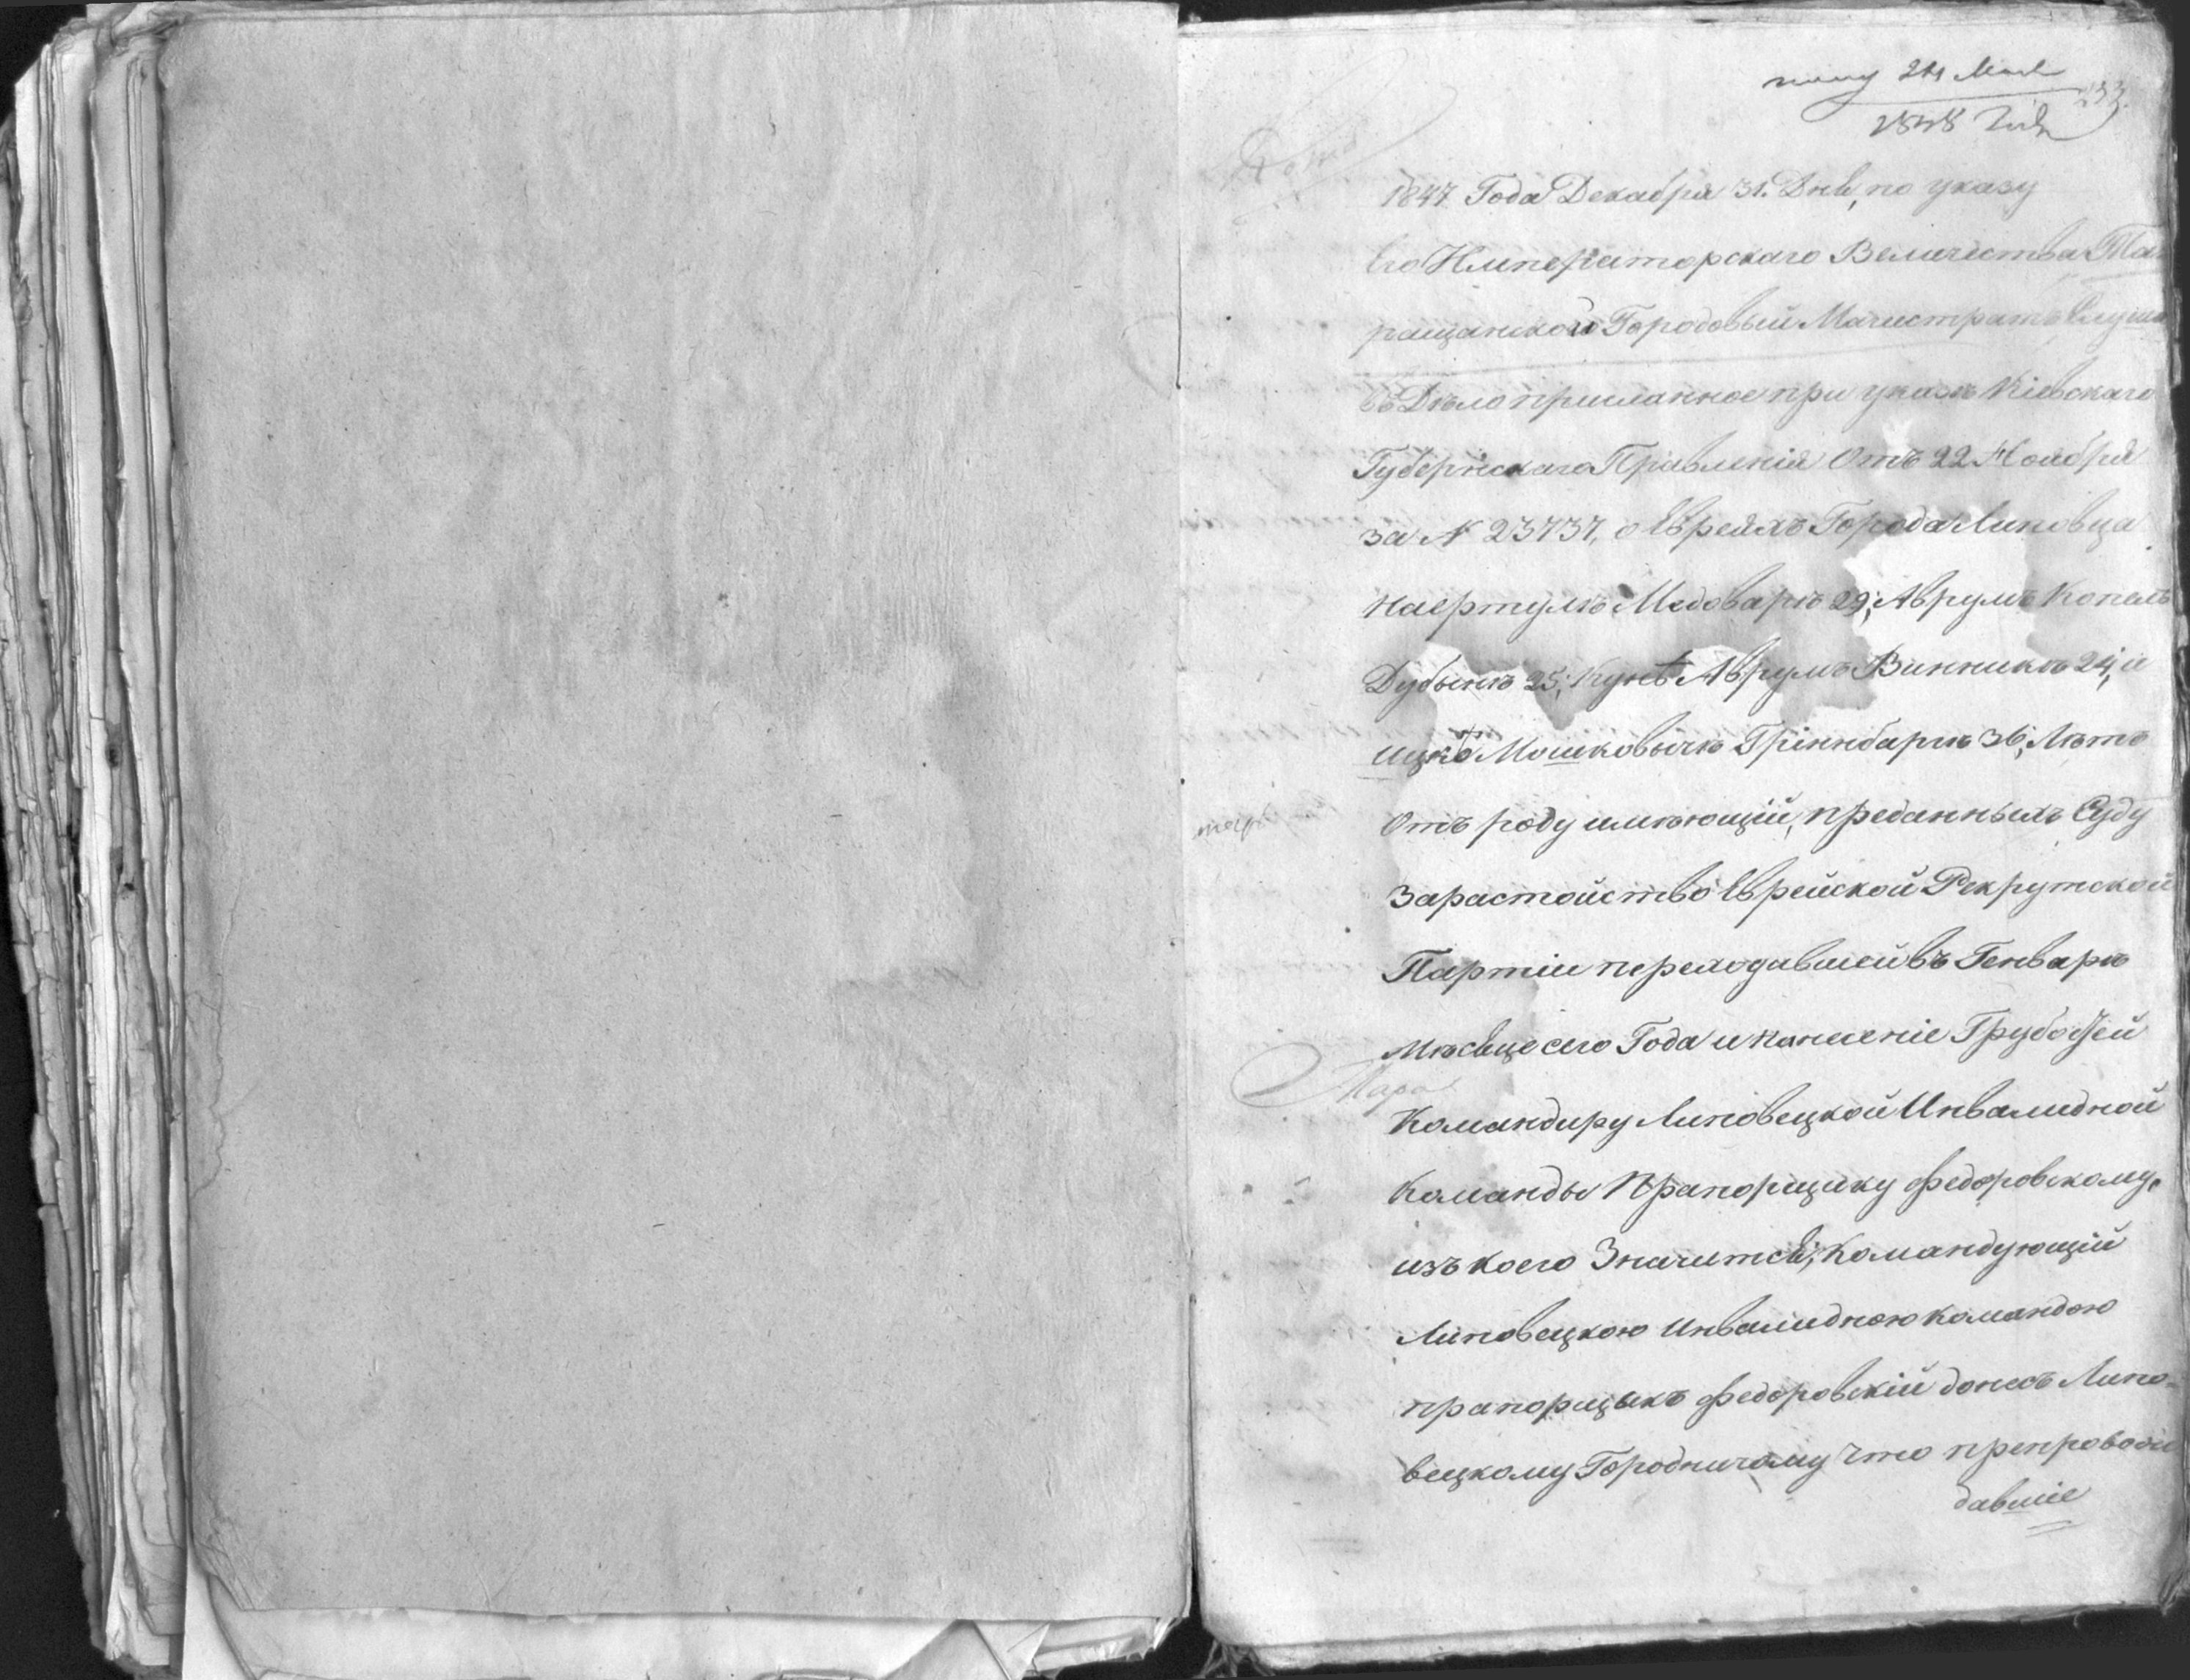 1848 Года
1847 Года Декабря 31. Дня, по указу
Его Императорскаго Величества Та
ращанской Городовый Магистратъ Слуша
въ Дѣло присланное при указѣ Кіевскаго
Губернскаго Правленія Отъ 22 Ноября
за № 23737, о Евреяхъ Города Липовца
Медоварѣ 29, Аврумъ Копель
Дубынѣ 25, Аврумъ Винникѣ 24, и
Ицко Мошковычѣ Гріннбаргѣ 36, Лѣтъ
Отъ роду имѣющій, преданныхъ Суду
За растойство Еврейской Рекрутской
Партіи переходившей въ Генварѣ
Мѣсяце сего Года и нанесеніе Грубостей
Командиру Липовецкой Инвалидной
Команды Прапорщику Федоровскому,
изъ коего Значится, Командующій
Липовецкою Инвалидною командою
прапорщыкъ Федоровскій донесъ Липо-
вецкому Городничому что препровож
давшіе